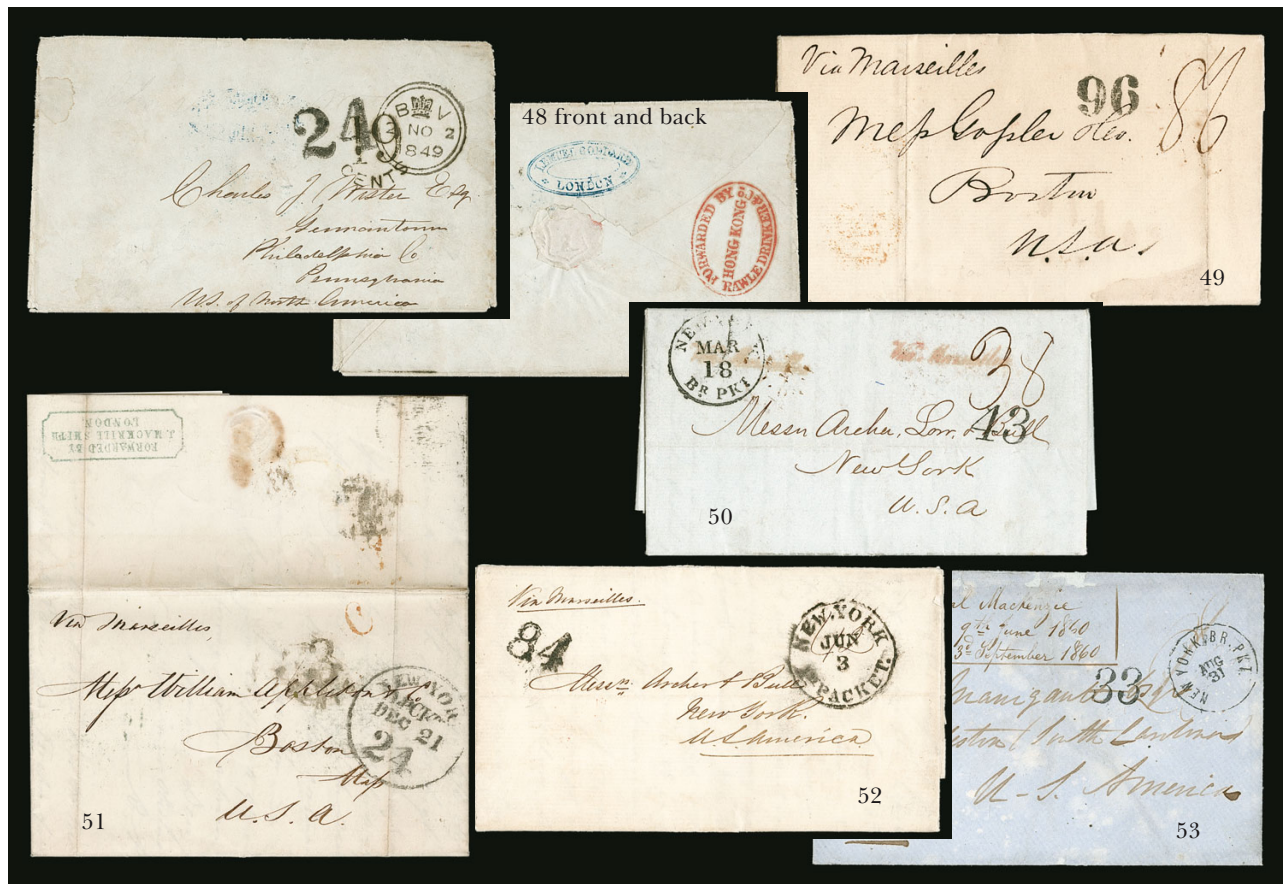 24
B V
NO 2
1849
CENTS
Charles J. Wister Esq.
Germantown
Philadelphia Co
Pennsylvania
U.S. of North America
48 front and back
LONDON
FORWARDED BY
RAWLE DRINKER & Co
HONG KONG
Via Marseilles
96
Boston
U.S.A.
49
NEW YORK
MAR
18
BR PKT
38
43
Messrs Archer, Low &
New York
U.S.A
50
FORWARDED BY
J. MACKRILL SMITH
LONDON
Via Marseilles,
Messrs William Appleton & Co.
Boston
Mass
U.S.A.
NEW YORK
DEC 21
24
51
Via Marseilles.
84
NEW-YORK
JUN
3
PACKET.
Messrs Archer & Bull
New York.
U.S. America
52
Mackenzie
9th June 1860
3d September 1860
33
NEW YORK BR. PKT.
AUG
31
U-S. America
53